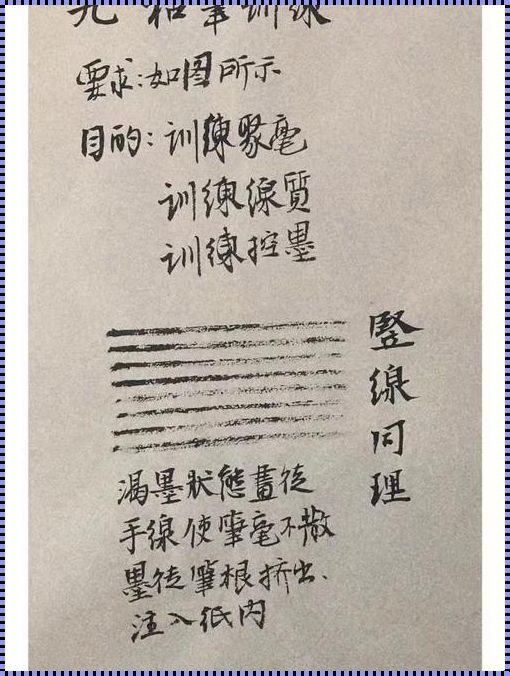 九 和筆训练
要求:如图所示
目的:训練聚毫
训練線質
训練控墨
竖線同理
渴墨狀態畫徒
手線使筆毫不散
墨從筆根挤出、
注入纸内